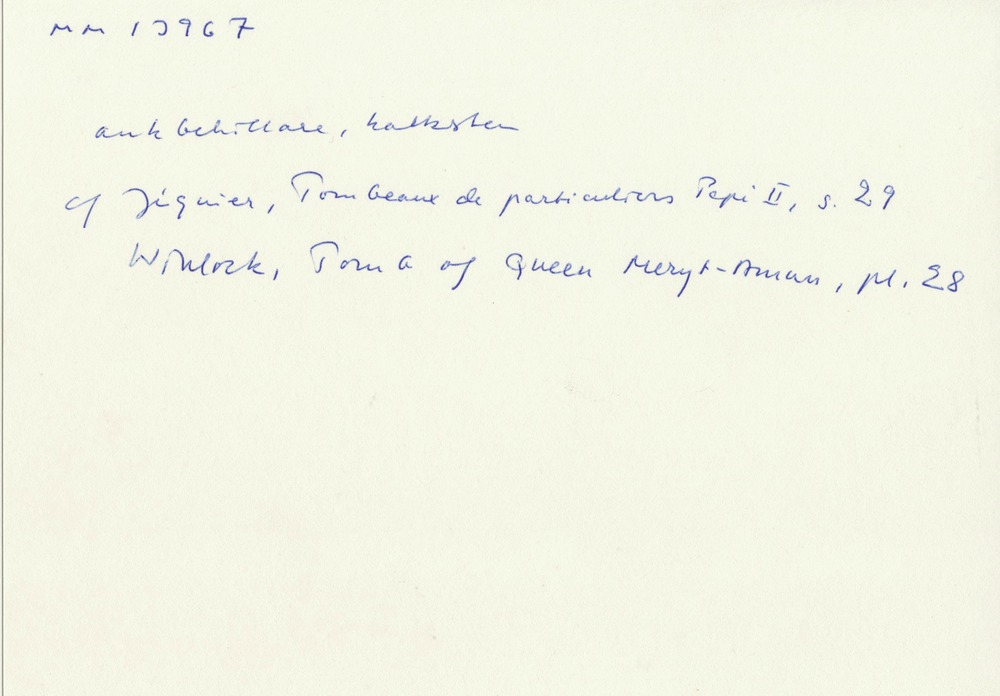 MM 13967
ankbehållare, kalksten
cf Jéquier, Tombeaux de particuliers Pepi II, s. 29
Winlock, Tomb of Queen Meryt-Amun, pl. 28